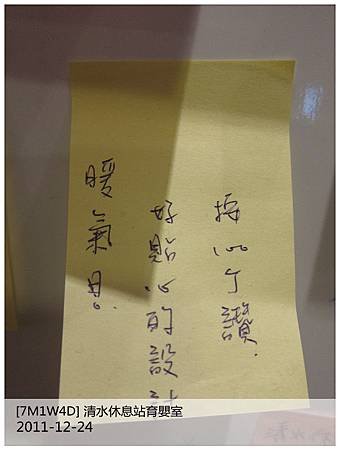 按100个讚.
好貼心的設計
暖氣ㄋ.
[7M1W4D] 清水休息站育嬰室
2011-12-24